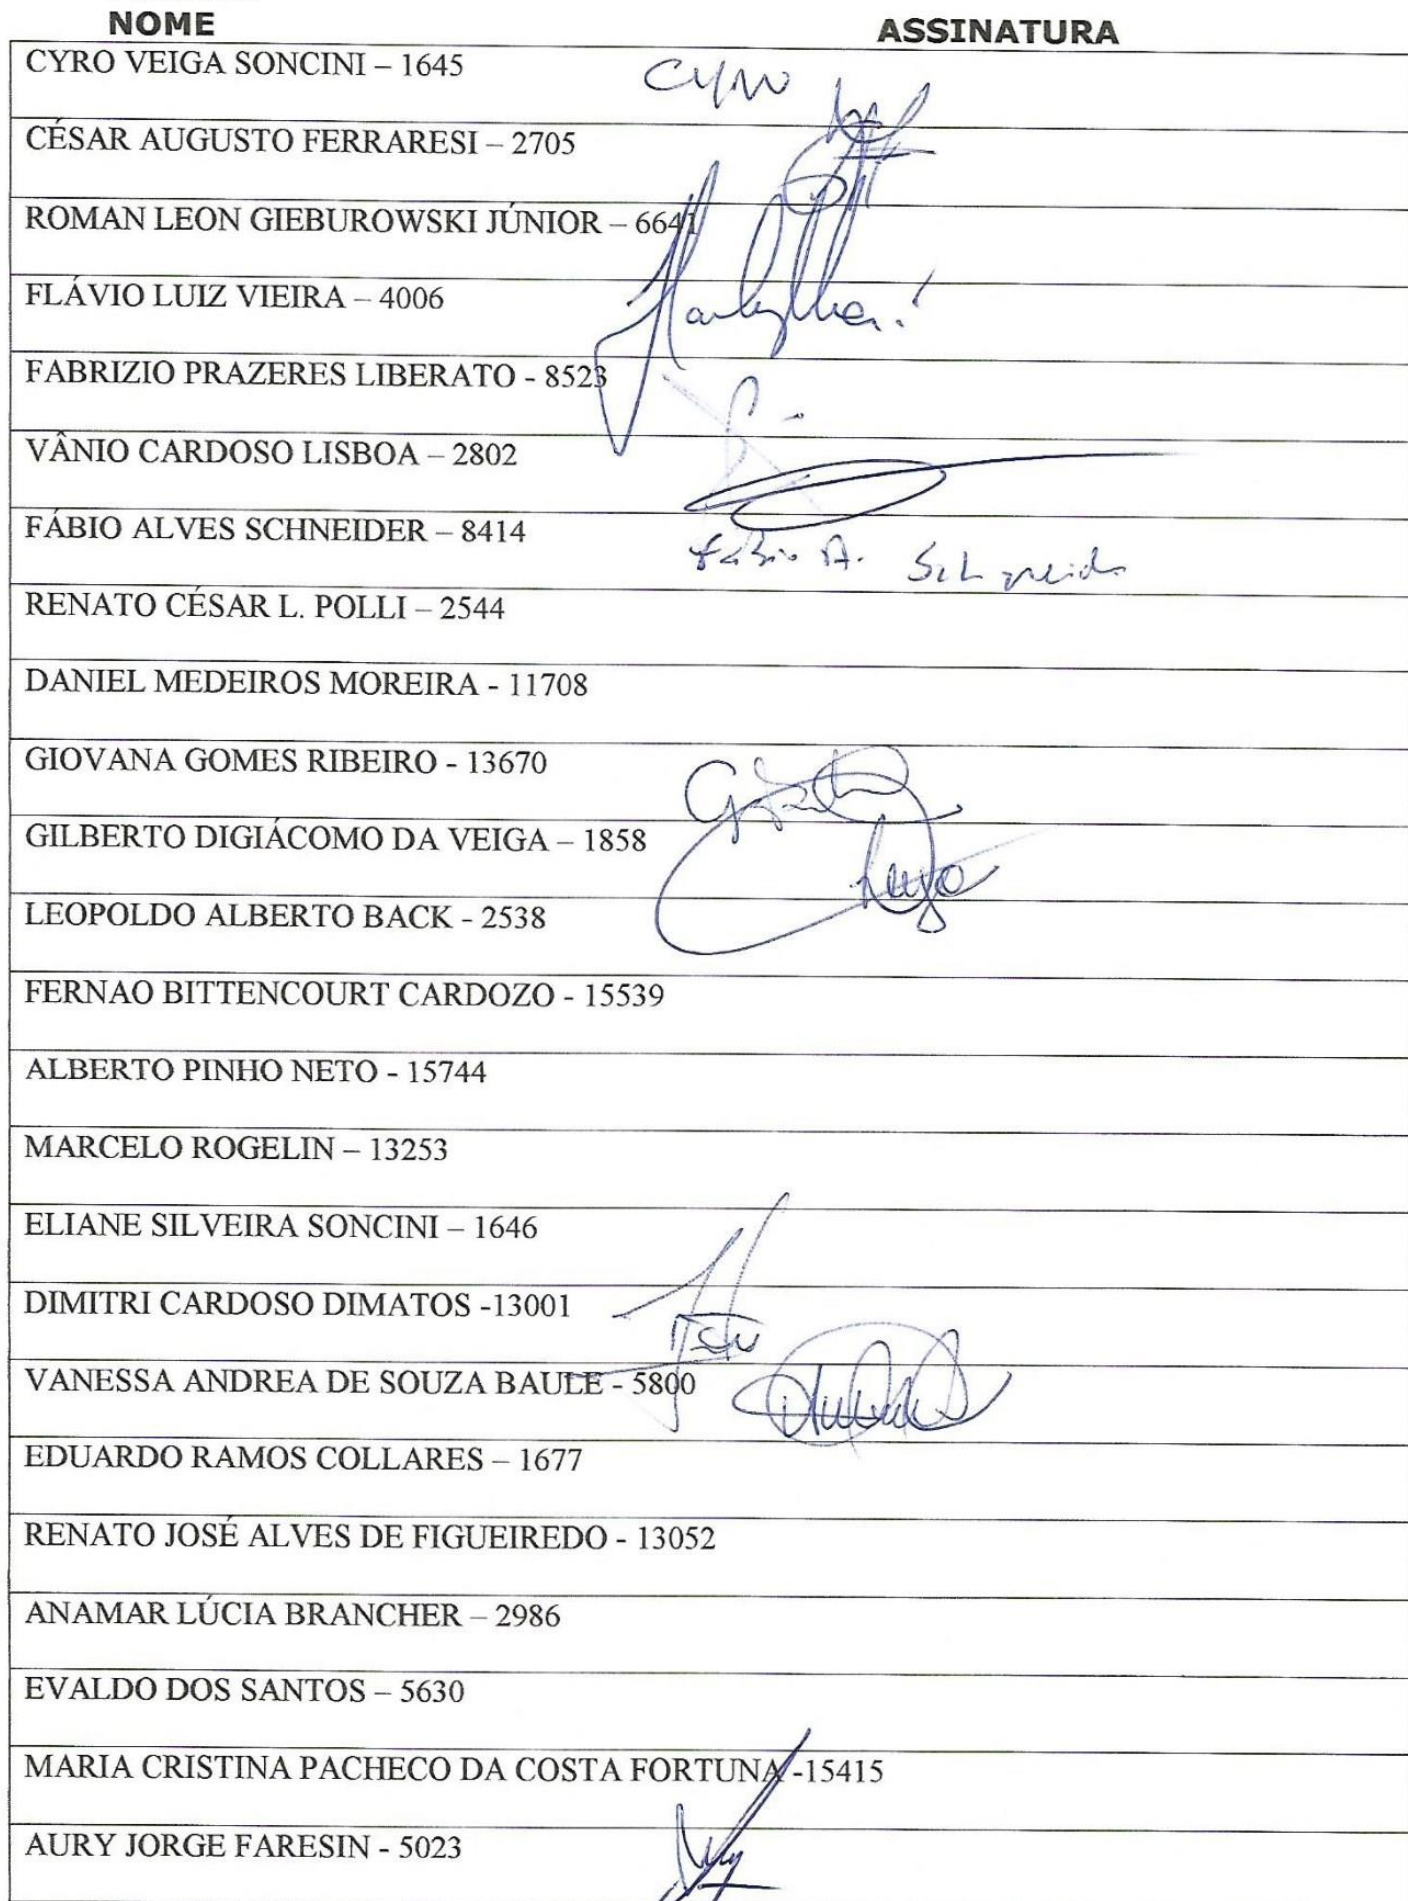 NOME ASSINATURA
CYRO VEIGA SONCINI – 1645 Cyro
CÉSAR AUGUSTO FERRARESI – 2705
ROMAN LEON GIEBUROWSKI JÚNIOR – 6641
FLÁVIO LUIZ VIEIRA – 4006
FABRIZIO PRAZERES LIBERATO - 8523
VÂNIO CARDOSO LISBOA – 2802
FÁBIO ALVES SCHNEIDER – 8414 Fábio A. Schneider
RENATO CÉSAR L. POLLI – 2544
DANIEL MEDEIROS MOREIRA - 11708
GIOVANA GOMES RIBEIRO - 13670
GILBERTO DIGIÁCOMO DA VEIGA – 1858
LEOPOLDO ALBERTO BACK - 2538
FERNAO BITTENCOURT CARDOZO - 15539
ALBERTO PINHO NETO - 15744
MARCELO ROGELIN – 13253
ELIANE SILVEIRA SONCINI – 1646
DIMITRI CARDOSO DIMATOS -13001
VANESSA ANDREA DE SOUZA BAULE - 5800
EDUARDO RAMOS COLLARES – 1677
RENATO JOSÉ ALVES DE FIGUEIREDO - 13052
ANAMAR LÚCIA BRANCHER – 2986
EVALDO DOS SANTOS – 5630
MARIA CRISTINA PACHECO DA COSTA FORTUNA -15415
AURY JORGE FARESIN - 5023